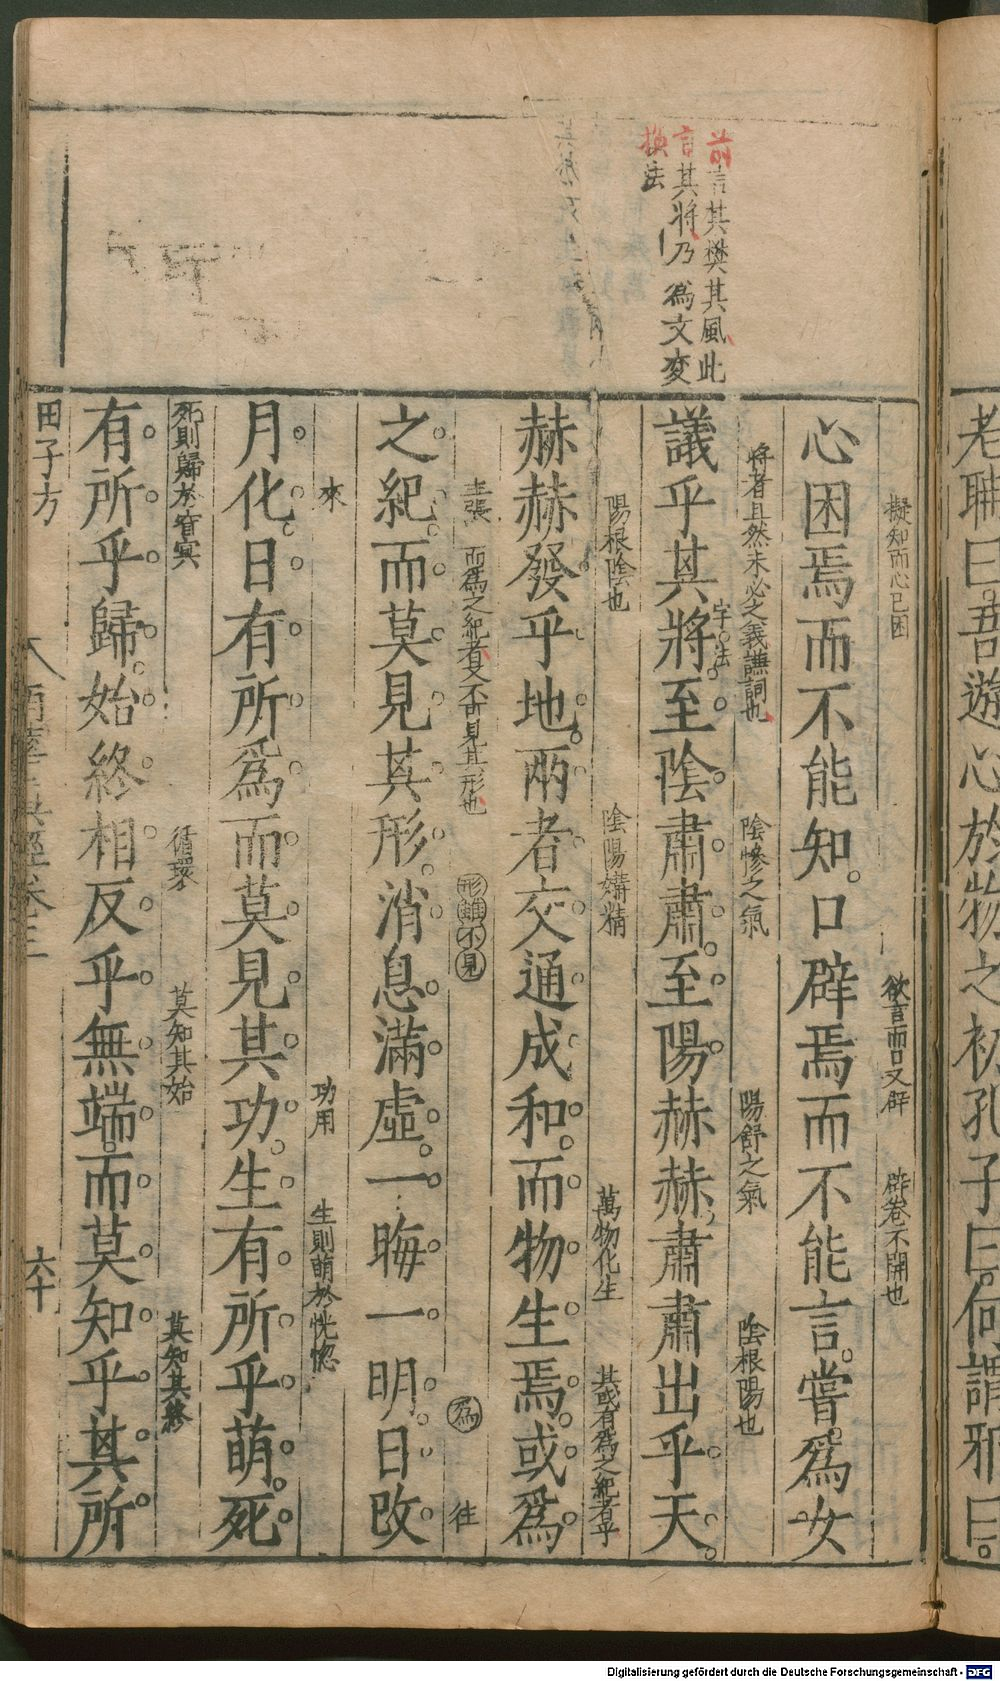 老聃曰吾遊心於物之初孔子曰何謂邪曰
擬知而心已困
欲言而口又辟
辟卷不開也
心困焉而不能知口辟焉而不能言嘗爲女
將者且然未必之義謙詞也
陰慘之氣
陽舒之氣
陰根陽也
議乎其將至陰肅肅至陽赫赫肅肅出乎天
字法
陽根陰也
陰陽媾精
萬物化生
其或有爲之紀者乎
赫赫發乎地兩者交通成和而物生焉或爲
主張
而爲之紀者又不可見其形也
不見
爲
往
之紀而莫見其形消息滿虛一晦一明日改
來
功用
生則萌於恍惚
月化日有所爲而莫見其功生有所乎萌死
死則歸於窅冥
循環
莫知其始
莫知其終
有所乎歸始終相反乎無端而莫知乎其所
田子方
六十
前言其樊其風此
言其將乃爲文變
換法
Digitalisierung gefördert durch die Deutsche Forschungsgemeinschaft - DFG